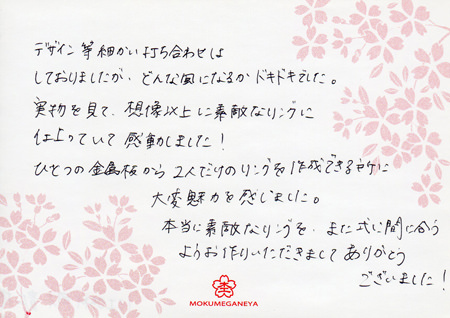 デザイン等細かい打ち合わせは
しておりましたが、どんな風になるかドキドキでした。
実物を見て、想像以上に素敵なリングに
仕上っていて感動しました！
ひとつの金属板から2人だけのリングを作成できる所に
大変魅力を感じました。
本当に素敵なリングを、また式に間に合う
ようお作りいただきましてありがとう
ございました！
MOKUMEGANEYA